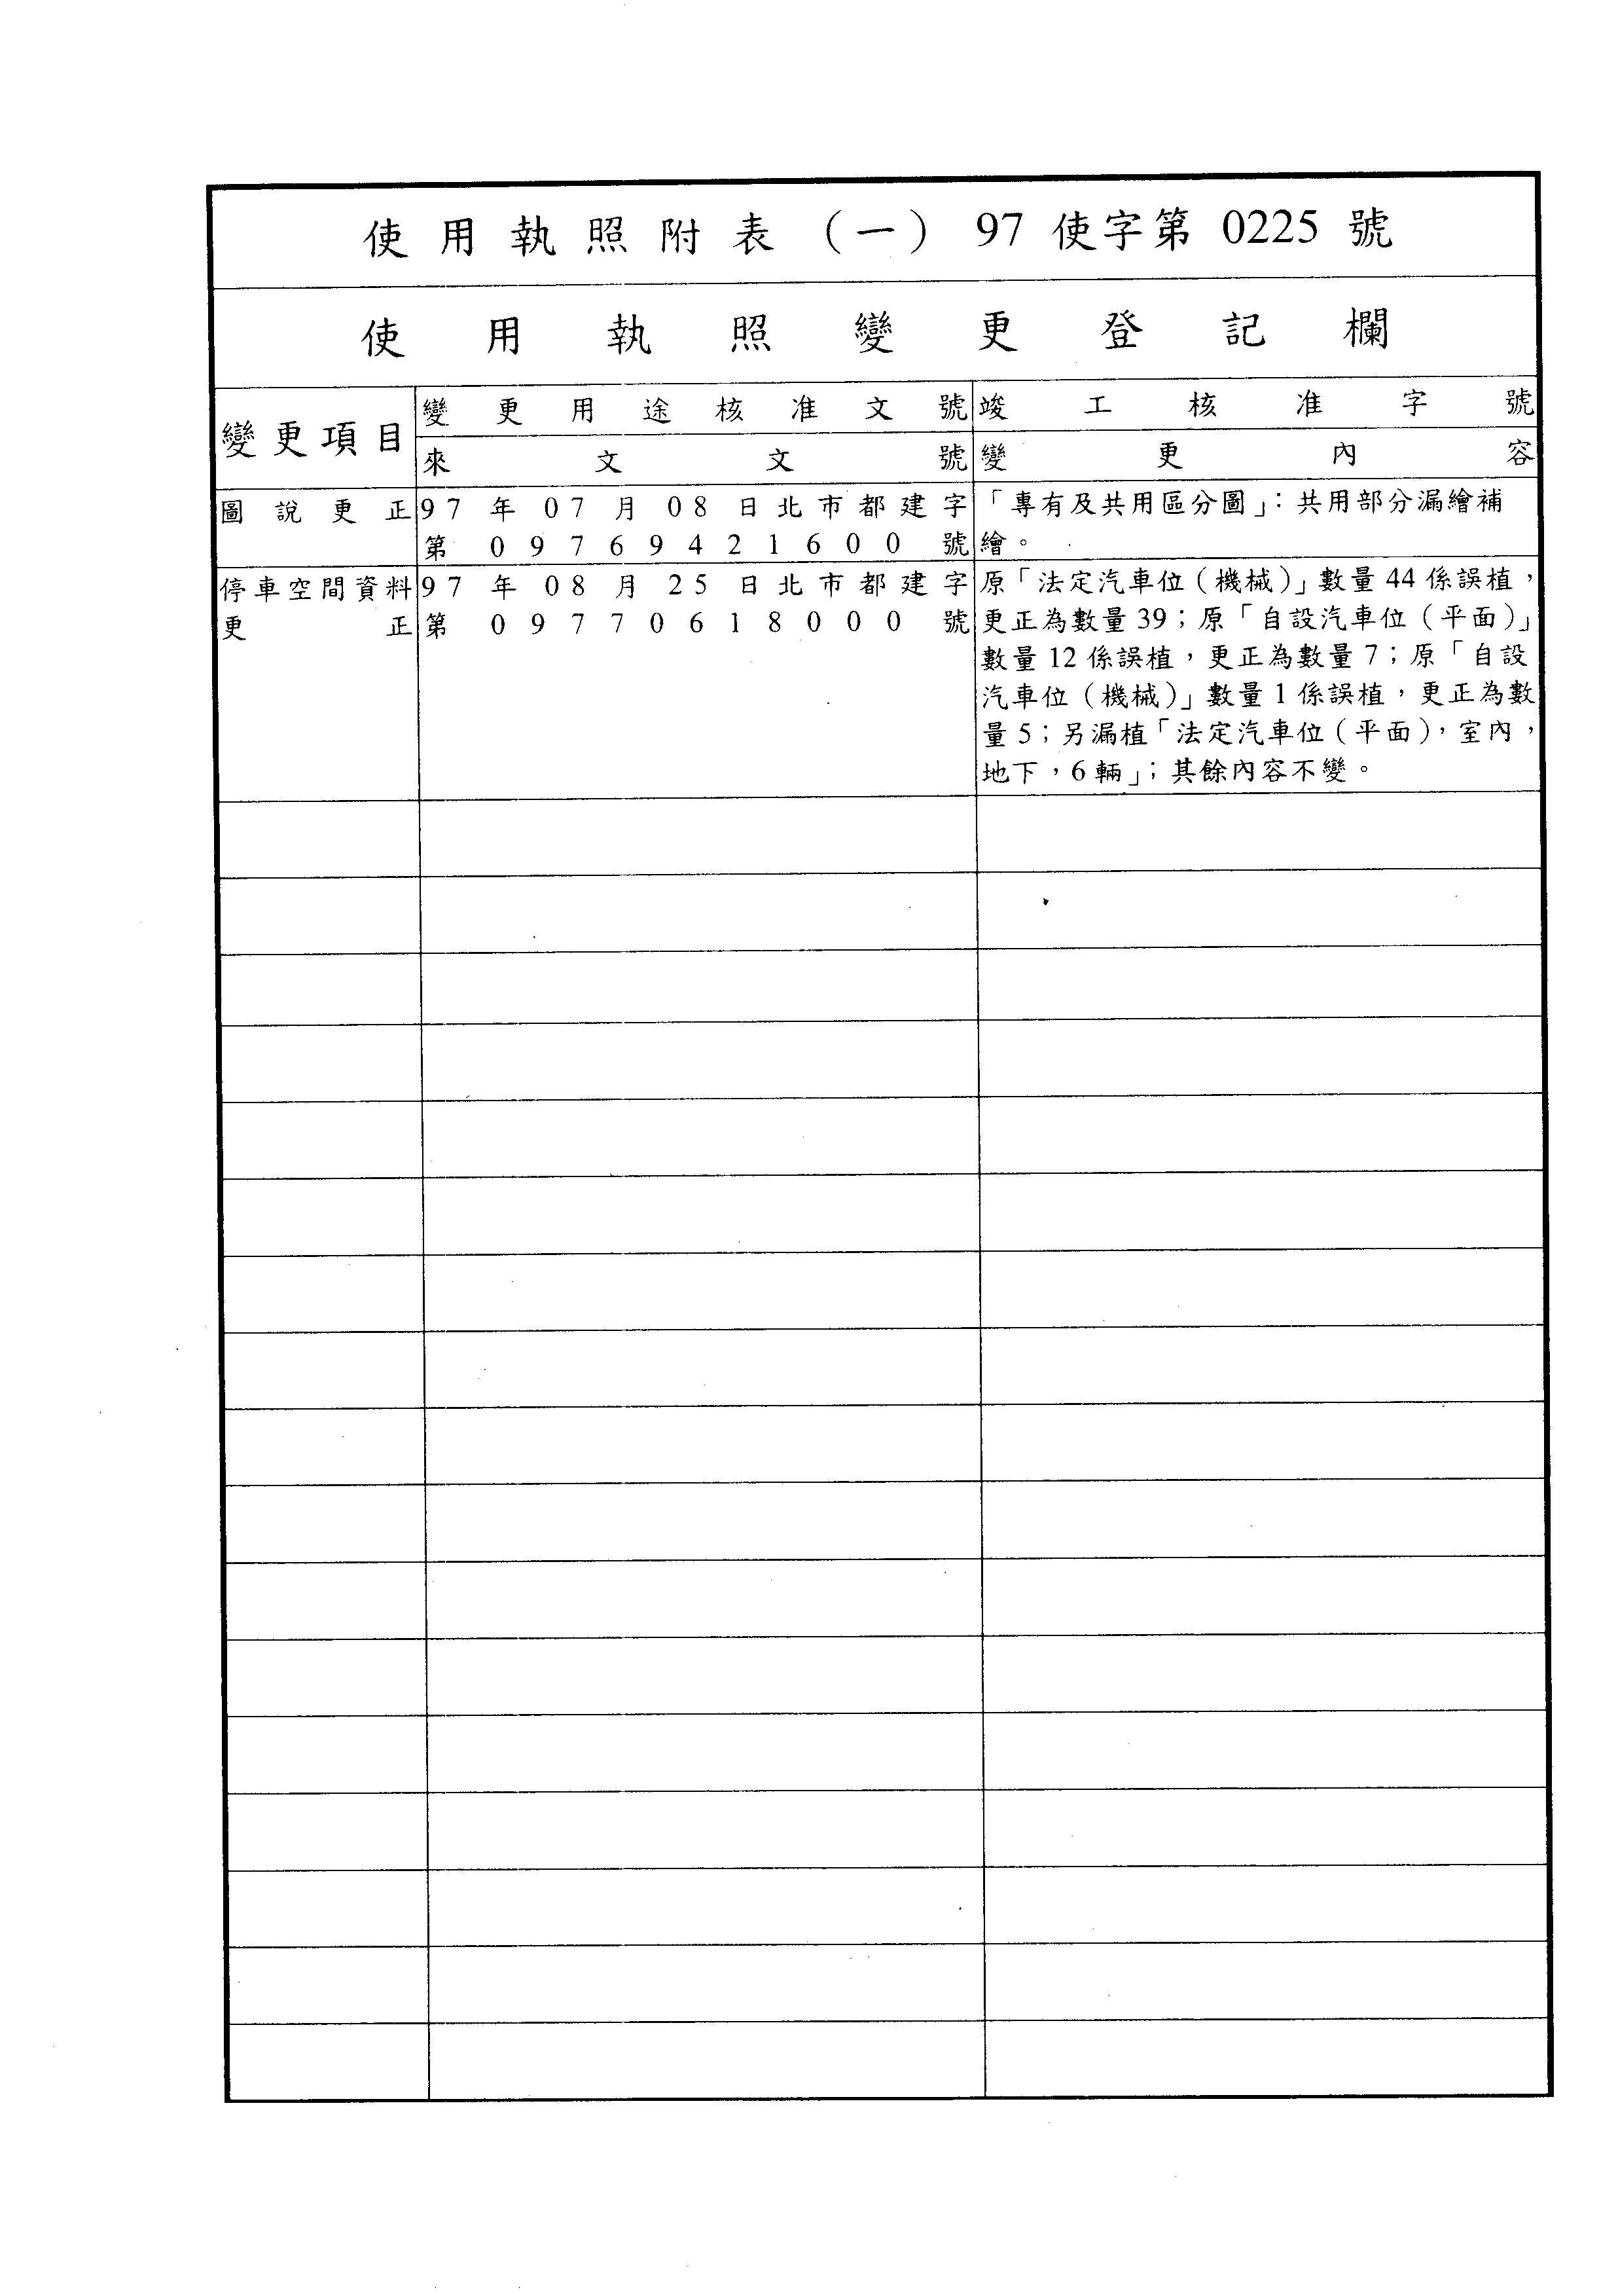 使用執照附表（一）97使字第0225號
使用執照變更登記欄
變更項目
變更用途核准文號
竣工核准字號
來文文號
變更內容
圖說更正
97年07月08日北市都建字
第09769421600號
「專有及共用區分圖」：共用部分漏繪補
繪。
停車空間資料
更正
97年08月25日北市都建字
第09770618000號
原「法定汽車位（機械）」數量44係誤植，
更正為數量39；原「自設汽車位（平面）」
數量12係誤植，更正為數量7；原「自設
汽車位（機械）」數量1係誤植，更正為數
量5；另漏植「法定汽車位（平面），室內，
地下，6輛」；其餘內容不變。